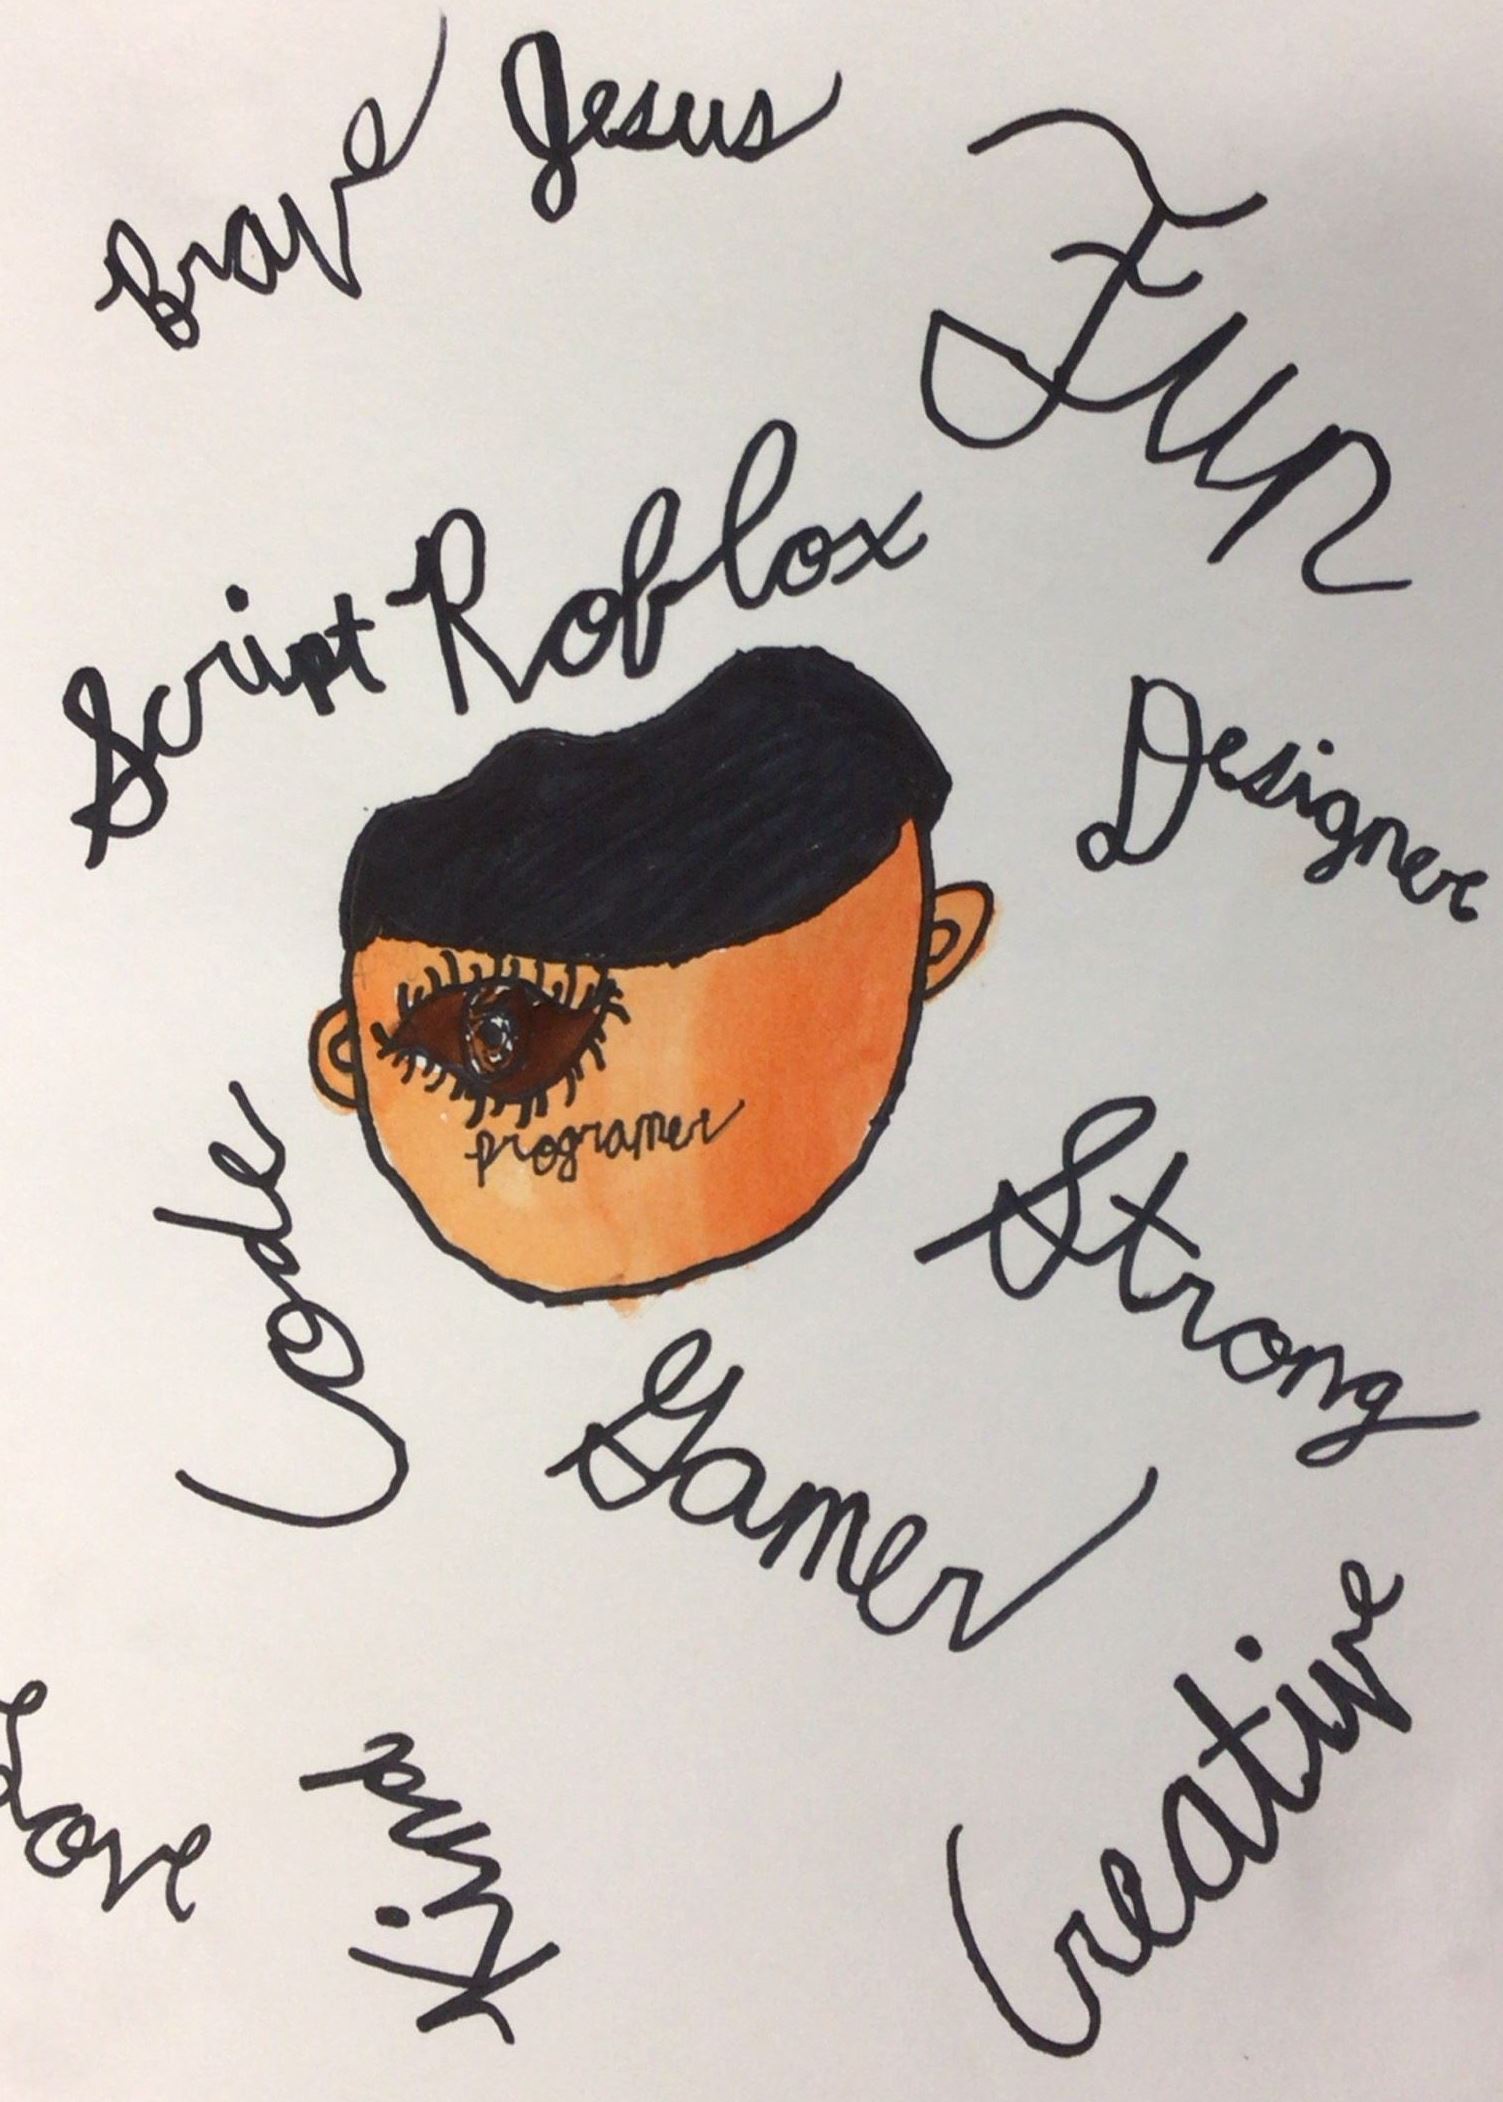 Brave
Jesus
Fun
Script Roblox
Designer
programer
Code
Strong
Gamer
Creative
Love
Kind